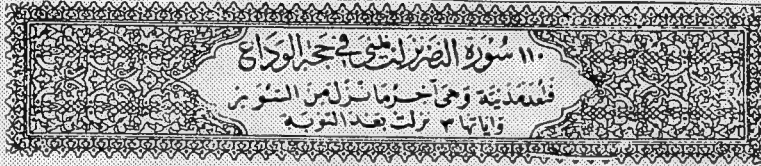 ١١٠ سُورَة النَّصْر نَزَلَت بِمِنًى فِي حَجَّة الوَدَاع
فَتُعَدّ مَدَنِيَّة وَهِيَ آخِر مَا نَزَلَ مِنَ السُّوَر
وَآيَاتُهَا ٣ نَزَلَتْ بَعْدَ التَّوبَة